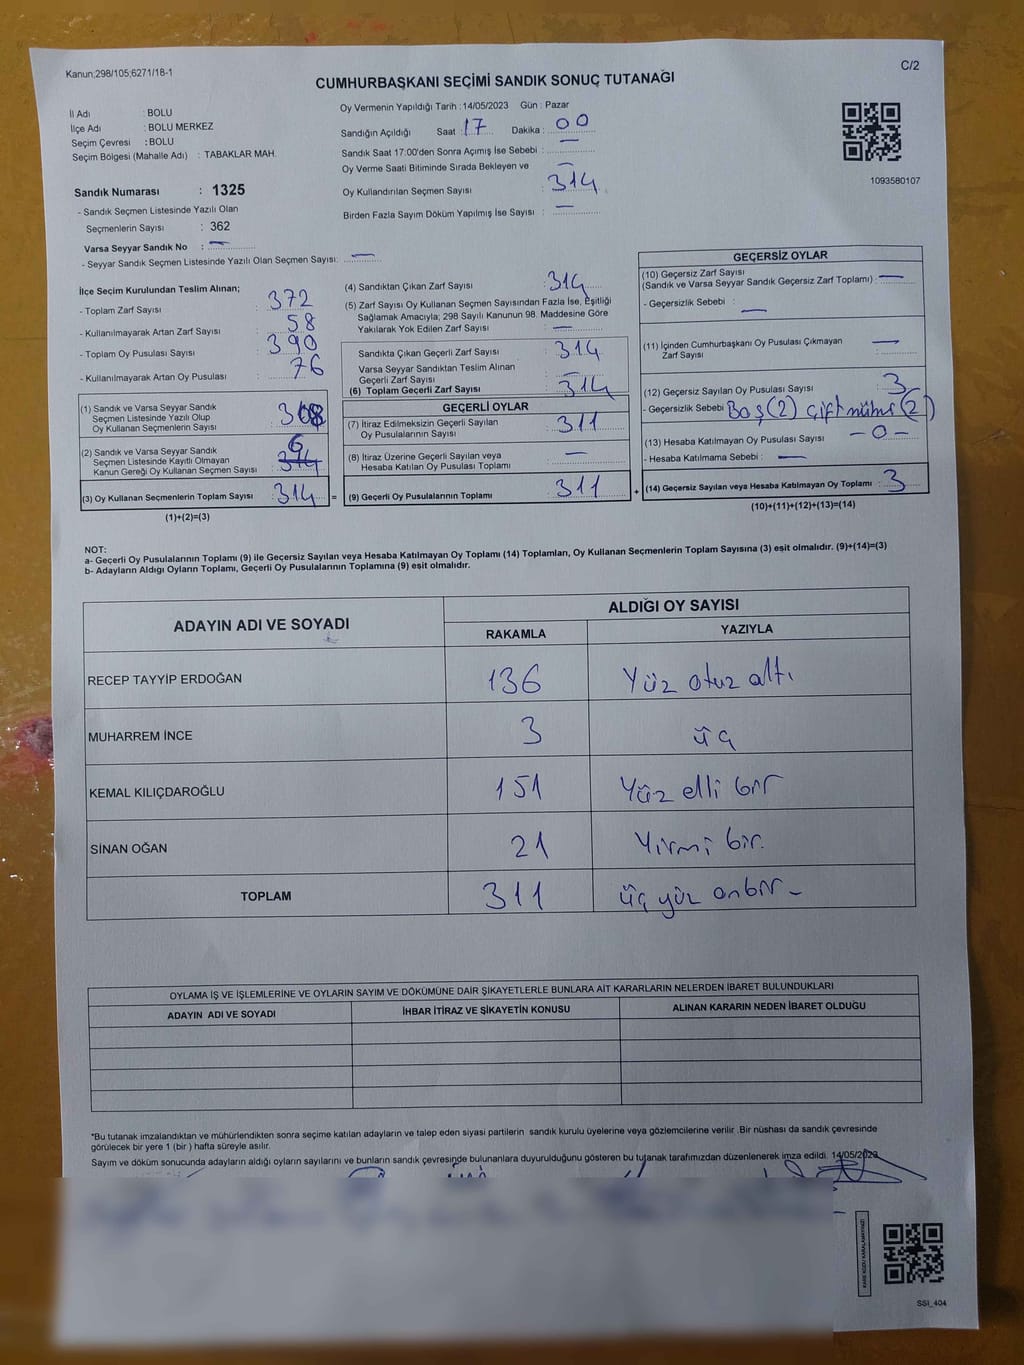 Kanun;298/105;6271/18-1
C/2
CUMHURBAŞKANI SEÇİMİ SANDIK SONUÇ TUTANAĞI
İl Adı : BOLU
İlçe Adı : BOLU MERKEZ
Seçim Çevresi : BOLU
Seçim Bölgesi (Mahalle Adı) : TABAKLAR MAH.
Sandık Numarası : 1325
- Sandık Seçmen Listesinde Yazılı Olan
Seçmenlerin Sayısı : 362
Varsa Seyyar Sandık No : —
- Seyyar Sandık Seçmen Listesinde Yazılı Olan Seçmen Sayısı: —
Oy Vermenin Yapıldığı Tarih : 14/05/2023 Gün : Pazar
Sandığın Açıldığı Saat : 17 Dakika : 00
Sandık Saat 17:00'den Sonra Açımış İse Sebebi : —
Oy Verme Saati Bitiminde Sırada Bekleyen ve —
Oy Kullandırılan Seçmen Sayısı : 314
Birden Fazla Sayım Döküm Yapılmış İse Sayısı : —
1093580107
İlçe Seçim Kurulundan Teslim Alınan;
- Toplam Zarf Sayısı : 372
- Kullanılmayarak Artan Zarf Sayısı : 58
- Toplam Oy Pusulası Sayısı : 390
- Kullanılmayarak Artan Oy Pusulası : 76
(1) Sandık ve Varsa Seyyar Sandık
Seçmen Listesinde Yazılı Olup
Oy Kullanan Seçmenlerin Sayısı : 308
(2) Sandık ve Varsa Seyyar Sandık
Seçmen Listesinde Kayıtlı Olmayan
Kanun Gereği Oy Kullanan Seçmen Sayısı : 6 314
(3) Oy Kullanan Seçmenlerin Toplam Sayısı : 314
(1)+(2)=(3)
(4) Sandıktan Çıkan Zarf Sayısı : 314
(5) Zarf Sayısı Oy Kullanan Seçmen Sayısından Fazla İse, Eşitliği
Sağlamak Amacıyla; 298 Sayılı Kanunun 98. Maddesine Göre
Yakılarak Yok Edilen Zarf Sayısı : —
Sandıkta Çıkan Geçerli Zarf Sayısı : 314
Varsa Seyyar Sandıktan Teslim Alınan
Geçerli Zarf Sayısı : —
(6) Toplam Geçerli Zarf Sayısı : 314
GEÇERLİ OYLAR
(7) İtiraz Edilmeksizin Geçerli Sayılan
Oy Pusulalarının Sayısı : 311
(8) İtiraz Üzerine Geçerli Sayılan veya
Hesaba Katılan Oy Pusulası Toplamı : —
= (9) Geçerli Oy Pusulalarının Toplamı : 311 +
GEÇERSİZ OYLAR
(10) Geçersiz Zarf Sayısı
(Sandık ve Varsa Seyyar Sandık Geçersiz Zarf Toplamı) : —
- Geçersizlik Sebebi : —
(11) İçinden Cumhurbaşkanı Oy Pusulası Çıkmayan
Zarf Sayısı : —
(12) Geçersiz Sayılan Oy Pusulası Sayısı : 3
- Geçersizlik Sebebi : Boş(2) çift mühür (2)
(13) Hesaba Katılmayan Oy Pusulası Sayısı : -0-
- Hesaba Katılmama Sebebi : —
(14) Geçersiz Sayılan veya Hesaba Katılmayan Oy Toplamı : 3
(10)+(11)+(12)+(13)=(14)
NOT:
a- Geçerli Oy Pusulalarının Toplamı (9) ile Geçersiz Sayılan veya Hesaba Katılmayan Oy Toplamı (14) Toplamları, Oy Kullanan Seçmenlerin Toplam Sayısına (3) eşit olmalıdır. (9)+(14)=(3)
b- Adayların Aldığı Oyların Toplamı, Geçerli Oy Pusulalarının Toplamına (9) eşit olmalıdır.
ADAYIN ADI VE SOYADI ALDIĞI OY SAYISI
RAKAMLA YAZIYLA
RECEP TAYYİP ERDOĞAN 136 Yüz otuz altı
MUHARREM İNCE 3 üç
KEMAL KILIÇDAROĞLU 151 Yüz elli bir
SİNAN OĞAN 21 Yirmi bir.
TOPLAM 311 üç yüz onbir -
OYLAMA İŞ VE İŞLEMLERİNE VE OYLARIN SAYIM VE DÖKÜMÜNE DAİR ŞİKAYETLERLE BUNLARA AİT KARARLARIN NELERDEN İBARET BULUNDUKLARI
ADAYIN ADI VE SOYADI İHBAR İTİRAZ VE ŞİKAYETİN KONUSU ALINAN KARARIN NEDEN İBARET OLDUĞU
*Bu tutanak imzalandıktan ve mühürlendikten sonra seçime katılan adayların ve talep eden siyasi partilerin sandık kurulu üyelerine veya gözlemcilerine verilir .Bir nüshası da sandık çevresinde
görülecek bir yere 1 (bir ) hafta süreyle asılır.
Sayım ve döküm sonucunda adayların aldığı oyların sayılarını ve bunların sandık çevresinde bulunanlara duyurulduğunu gösteren bu tutanak tarafımızdan düzenlenerek imza edildi. 14/05/2023
SSI_404